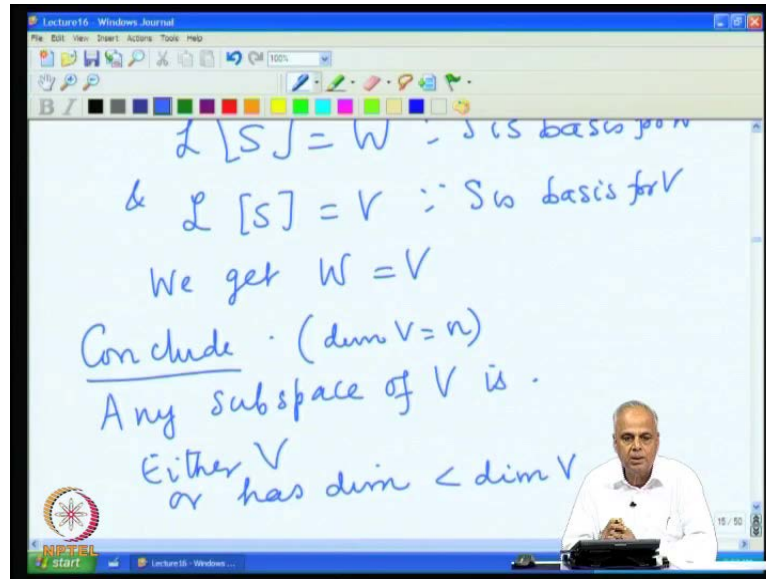 Lecture16 - Windows Journal
File Edit View Insert Actions Tools Help
100%
B I
L [S] = W ∵ S is basis for W
& L [S] = V ∵ S is basis for V
We get W = V
Conclude . (dim V = n)
Any subspace of V is .
Either V
or has dim < dim V
15 / 50
NPTEL
start
Lecture16 - Windows ...